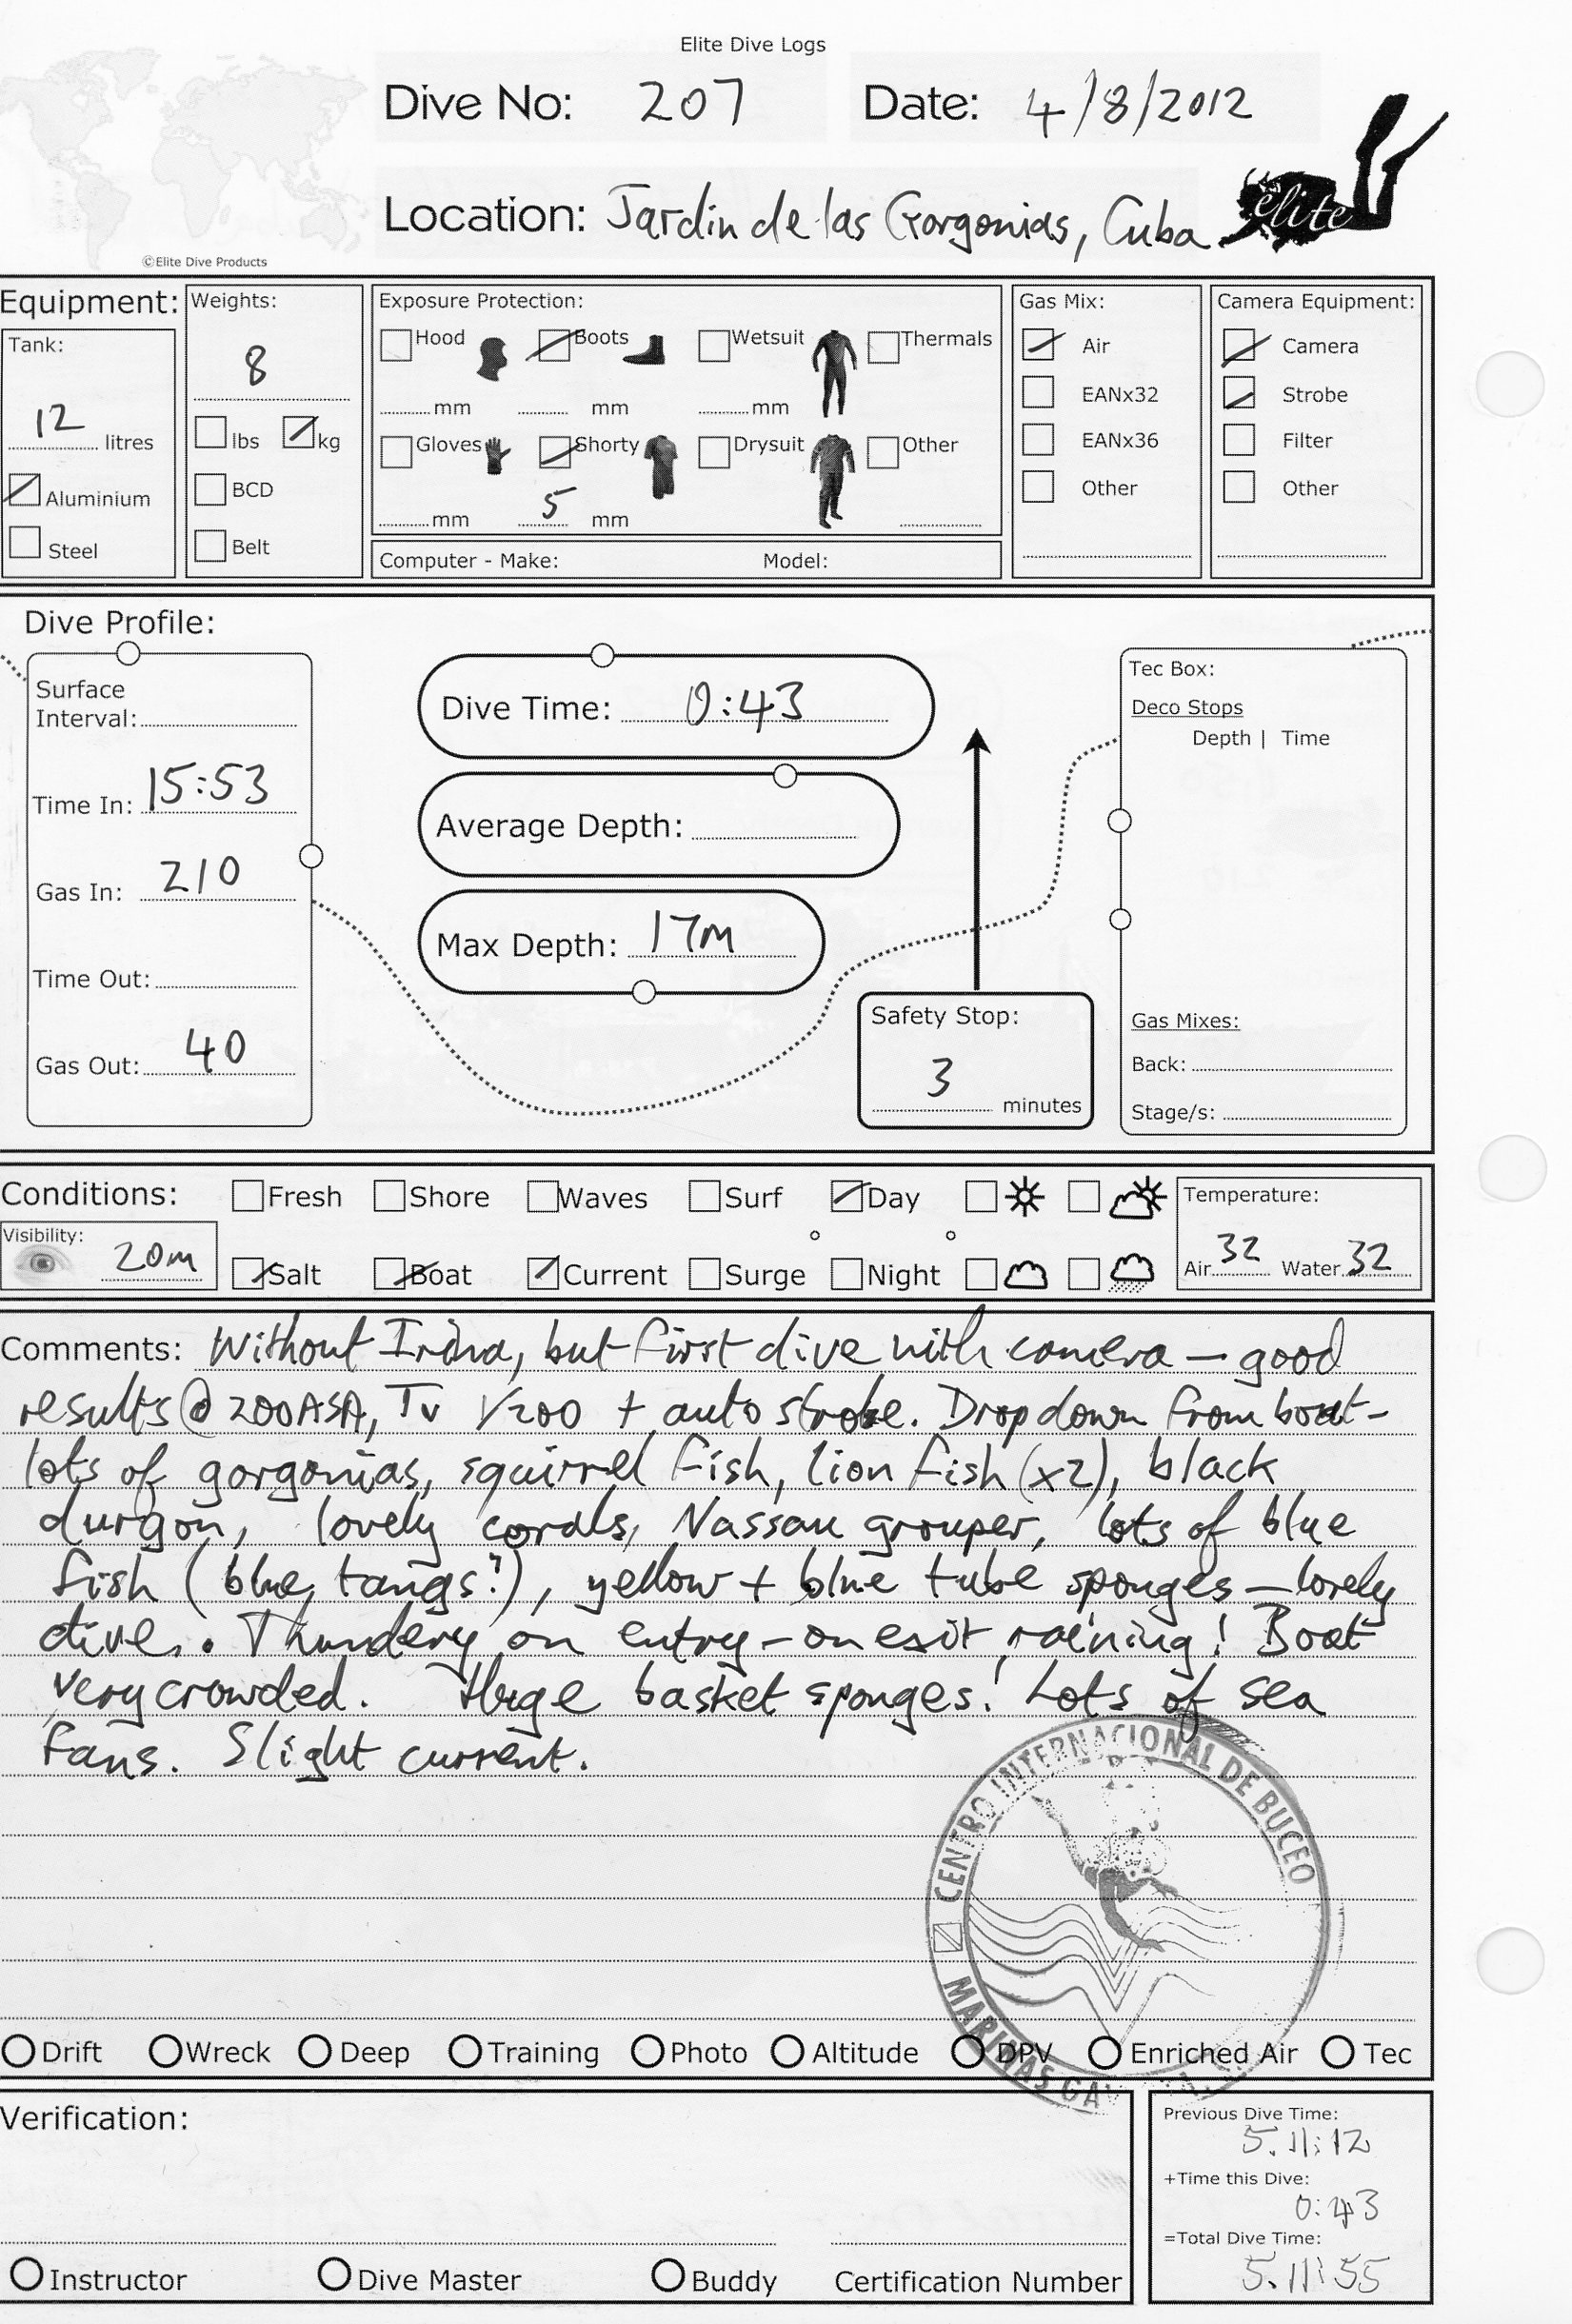 Elite Dive Logs
Dive No: 207 Date: 4/8/2012
Location: Jardin de las Gorgonias, Cuba
elite
©Elite Dive Products
Equipment:
Tank:
12 litres
Aluminium
Steel
Weights:
8
lbs kg
BCD
Belt
Exposure Protection:
Hood Boots Wetsuit Thermals
mm mm mm
Gloves Shorty Drysuit Other
mm 5 mm
Computer - Make: Model:
Gas Mix:
Air
EANx32
EANx36
Other
Camera Equipment:
Camera
Strobe
Filter
Other
Dive Profile:
Surface
Interval:
Time In: 15:53
Gas In: 210
Time Out:
Gas Out: 40
Dive Time: 0:43
Average Depth:
Max Depth: 17m
Safety Stop:
3 minutes
Tec Box:
Deco Stops
Depth | Time
Gas Mixes:
Back:
Stage/s:
Conditions: Fresh Shore Waves Surf Day
Visibility: 20m
Salt Boat Current Surge Night
Temperature:
Air 32 Water 32
Comments: Without Irina, but first dive with camera – good
results @ 200ASA, Tv 1/200 + auto strobe. Drop down from boat -
lots of gorgonias, squirrel fish, lion fish (x2), black
durgon, lovely corals, Nassau grouper, lots of blue
fish (blue tangs?), yellow + blue tube sponges – lovely
dive. Thundery on entry – on exit raining! Boat
very crowded. Huge basket sponges! Lots of sea
fans. Slight current.
CENTRO INTERNACIONAL DE BUCEO
MARINAS GAV
Drift Wreck Deep Training Photo Altitude DPV Enriched Air Tec
Verification:
Instructor Dive Master Buddy Certification Number
Previous Dive Time:
5.11:12
+Time this Dive:
0:43
=Total Dive Time:
5.11:55